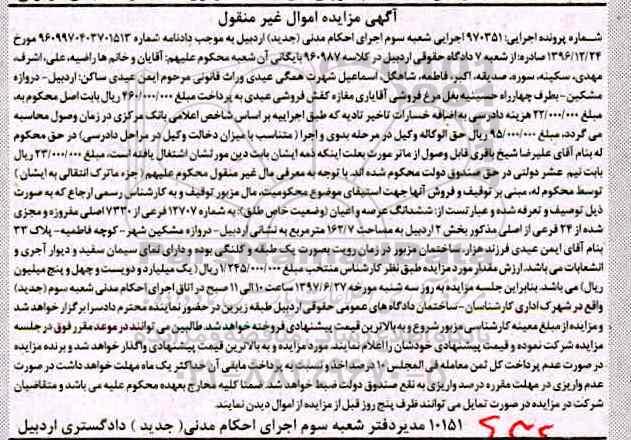 آگهی مزایده اموال غیر منقول
شماره پرونده اجرایی: ۹۷۰۳۵۱ اجرایی شعبه سوم اجرای احکام مدنی (جدید) اردبیل به موجب دادنامه شماره ۹۶۰۹۹۷۰۴۰۳۷۰۱۵۱۳ مورخ
۱۳۹۶/۱۲/۲۴ صادره از شعبه ۷ دادگاه حقوقی اردبیل در کلاسه ۹۶۰۹۸۷ بایگانی آن شعبه محکوم علیهم: آقایان و خانم ها راضیه، علی، اشرف،
مهدی، سکینه، سوره، صدیقه، اکبر، فاطمه، شاهگل، اسماعیل شهرت همگی عبدی وراث قانونی مرحوم ایمن عبدی ساکن: اردبیل - دروازه
مشکین - بطرف چهارراه حسینیه بغل مرغ فروشی آقایاری مغازه کفش فروشی عبدی به پرداخت مبلغ ۴۶۰/۰۰۰/۰۰۰ ریال بابت اصل محکوم به،
مبلغ ۲۲/۰۰۰/۰۰۰ هزینه دادرسی به اضافه خسارات تاخیر تادیه که طبق اجراییه بر اساس شاخص اعلامی بانک مرکزی در زمان وصول محاسبه
می گردد، مبلغ ۹۵/۰۰۰/۰۰۰ ریال حق الوکاله وکیل در مرحله بدوی و اجرا (متناسب با میزان دخالت وکیل در مراحل دادرسی) در حق محکوم
له بنام آقای علیرضا شیخ باقری قابل وصول از ماتر مورث بعلت اینکه ذمه ایشان بابت دین مورثشان اشتغال یافته است، مبلغ ۲۳/۰۰۰/۰۰۰ ریال
بابت نیم عشر دولتی در حق صندوق دولت محکوم شده اند. با توجه به معرفی مال غیر منقول محکوم علیهم (جزء ماترک انتقالی به ایشان)
توسط محکوم له، مبنی بر توقیف و فروش آنها جهت استیفای موضوع محکومیت، مال مزبور توقیف و به کارشناس رسمی ارجاع که به صورت
ذیل توصیف و تعرفه شده و عبارتست از: ششدانگ عرصه و اعیان (وضعیت خاص طلق): به شماره ۱۳۷۰۷ فرعی از ۷۳۳۰ اصلی مفروزه و مجزی
شده از ۲۴ فرعی از اصلی مذکور بخش ۲ اردبیل به مساحت ۱۶۲/۷ مترمربع به نشانی اردبیل - دروازه مشکین شهر - کوچه فاطمیه - پلاک ۳۳
بنام آقای ایمن عبدی فرزند هزار. ساختمان مزبور در زمان رویت بصورت یک طبقه و کلنگی بوده و دارای نمای سیمان سفید و دیوار آجری و
انشعابات می باشد. ارزش مقدار مورد مزایده طبق نظر کارشناس منتخب مبلغ ۱/۲۴۵/۰۰۰/۰۰۰ ریال (یک میلیارد و دویست و چهل و پنج میلیون
ریال) می باشد. بنابراین جلسه مزایده به روز سه شنبه مورخه ۱۳۹۷/۶/۲۷ ساعت ۱۰ الی ۱۱ صبح در اتاق اجرای احکام مدنی شعبه سوم (جدید)
واقع در شهرک اداری کارشناسان - ساختمان دادگاه های عمومی حقوقی اردبیل طبقه زیرین در حضور نماینده محترم دادسرا برگزار خواهد شد
و مزایده از مبلغ معینه کارشناسی مزبور شروع و به بالاترین قیمت پیشنهادی فروخته خواهد شد. طالبین می توانند در موعد مقرر فوق در جلسه
مزایده شرکت نموده و قیمت پیشنهادی خودشان را اعلام نمایند. مورد مزایده و به بالاترین قیمت پیشنهادی واگذار خواهد شد و برنده مزایده
در صورت عدم پرداخت کل ثمن معامله فی المجلس ۱۰ درصد اخذ و نسبت به پرداخت مابقی آن حداکثر یک ماه مهلت خواهد داشت در صورت
عدم واریزی در مهلت مقرره درصد واریزی به نفع صندوق دولت ضبط خواهد شد. ضمنا کلیه مخارج بعهده محکوم علیه می باشد و متقاضیان
شرکت در مزایده در صورت تمایل می توانند ظرف پنج روز قبل از مزایده از اموال دیدن نمایند.
۱۰۱۵۱ مدیر دفتر شعبه سوم اجرای احکام مدنی (جدید) دادگستری اردبیل